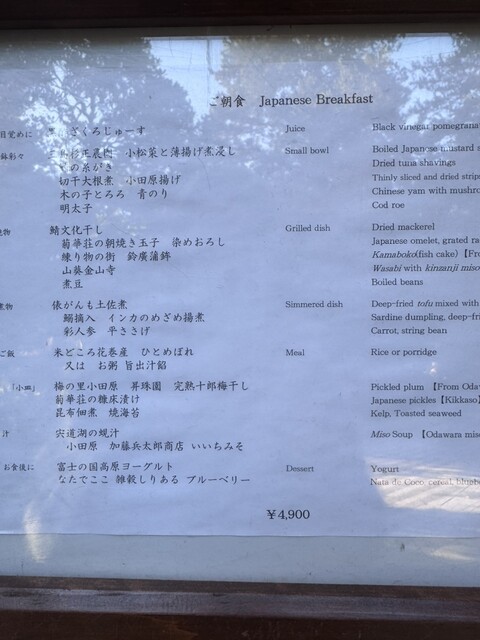 ご朝食 Japanese Breakfast
目覚めに ざくろじゅーす Juice Black vinegar pomegrana
鉢彩々 小松菜と薄揚げ煮浸し Small bowl Boiled Japanese mustard s
の糸がき Dried tuna shavings
切干大根煮 小田原揚げ Thinly sliced and dried strips
木の子とろろ 青のり Chinese yam with mushro
明太子 Cod roe
焼物 鯖文化干し Grilled dish Dried mackerel
菊華荘の朝焼き玉子 染めおろし Japanese omelet, grated ra
練り物の街 鈴廣蒲鉾 Kamaboko(fish cake)【Fro
山葵金山寺 Wasabi with kinzanji miso
煮豆 Boiled beans
煮物 俵がんも土佐煮 Simmered dish Deep-fried tofu mixed with
鰯摘入 インカのめざめ揚煮 Sardine dumpling, deep-frie
彩人参 平ささげ Carrot, string bean
ご飯 米どころ花巻産 ひとめぼれ Meal Rice or porridge
又は お粥 旨出汁餡
「小皿」 梅の里小田原 昇珠園 完熟十郎梅干し Pickled plum 【From Oda
菊華荘の糠床漬け Japanese pickles【Kikkaso
昆布佃煮 焼海苔 Kelp, Toasted seaweed
汁 宍道湖の蜆汁 Miso Soup 【Odawara mis
小田原 加藤兵太郎商店 いいちみそ
お食後に 富士の国高原ヨーグルト Dessert Yogurt
なたでここ 雑穀しりある ブルーベリー Nata de Coco, cereal, blueb
¥4,900